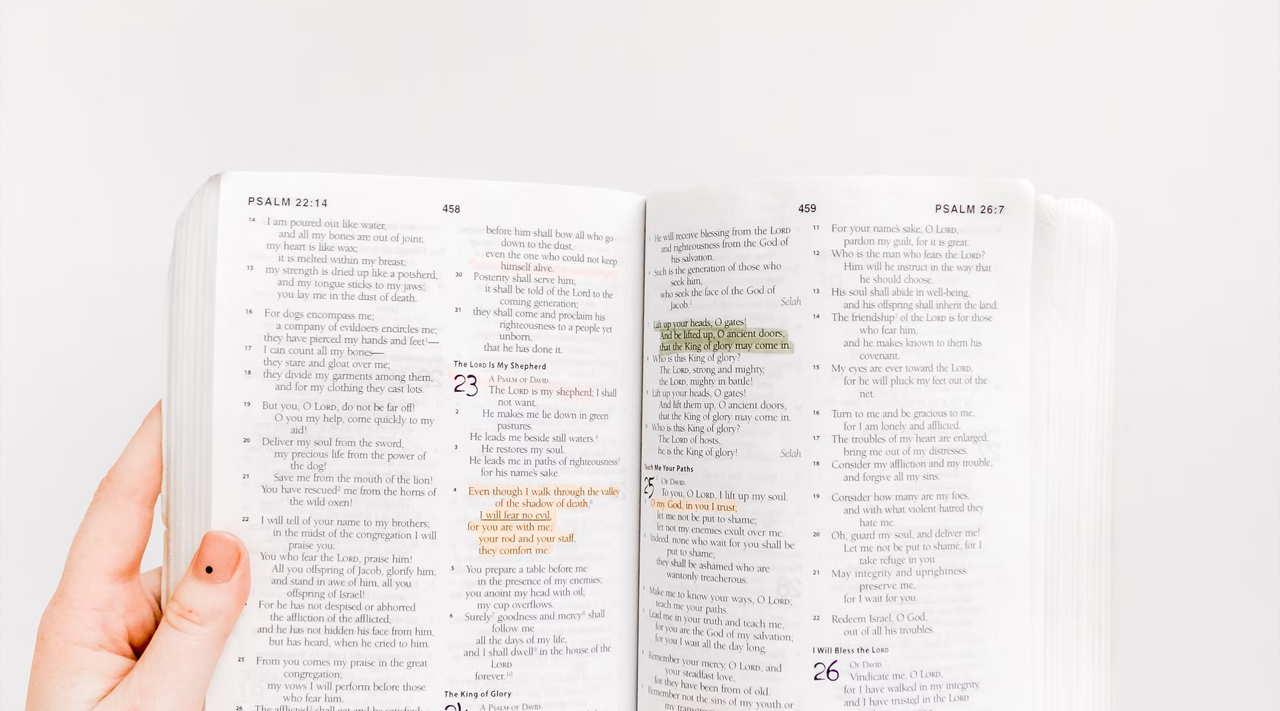 PSALM 22:14
458
14 I am poured out like water,
and all my bones are out of joint;
my heart is like wax;
it is melted within my breast;
15 my strength is dried up like a potsherd,
and my tongue sticks to my jaws;
you lay me in the dust of death.
16 For dogs encompass me;
a company of evildoers encircles me;
they have pierced my hands and feet¹—
17 I can count all my bones—
they stare and gloat over me;
18 they divide my garments among them,
and for my clothing they cast lots.
19 But you, O LORD, do not be far off!
O you my help, come quickly to my
aid!
20 Deliver my soul from the sword,
my precious life from the power of
the dog!
21 Save me from the mouth of the lion!
You have rescued² me from the horns of
the wild oxen!
22 I will tell of your name to my brothers;
in the midst of the congregation I will
praise you:
You who fear the LORD, praise him!
All you offspring of Jacob, glorify him,
and stand in awe of him, all you
offspring of Israel!
For he has not despised or abhorred
the affliction of the afflicted,
and he has not hidden his face from him,
but has heard, when he cried to him.
25 From you comes my praise in the great
congregation;
my vows I will perform before those
who fear him.
26 The afflicted³ shall eat and be satisfied;
before him shall bow all who go
down to the dust,
even the one who could not keep
himself alive.
30 Posterity shall serve him;
it shall be told of the Lord to the
coming generation;
31 they shall come and proclaim his
righteousness to a people yet
unborn,
that he has done it.
The LORD Is My Shepherd
23 A PSALM OF DAVID.
The LORD is my shepherd; I shall
not want.
2 He makes me lie down in green
pastures.
He leads me beside still waters.⁴
3 He restores my soul.
He leads me in paths of righteousness⁵
for his name's sake.
4 Even though I walk through the valley
of the shadow of death,⁶
I will fear no evil,
for you are with me;
your rod and your staff,
they comfort me.
5 You prepare a table before me
in the presence of my enemies;
you anoint my head with oil;
my cup overflows.
6 Surely⁷ goodness and mercy⁸ shall
follow me
all the days of my life,
and I shall dwell⁹ in the house of the
LORD
forever.¹⁰
The King of Glory
24 A PSALM OF DAVID.
459
PSALM 26:7
He will receive blessing from the LORD
and righteousness from the God of
his salvation.
Such is the generation of those who
seek him,
who seek the face of the God of
Jacob.¹
Selah
Lift up your heads, O gates!
And be lifted up, O ancient doors,
that the King of glory may come in.
Who is this King of glory?
The LORD, strong and mighty,
the LORD, mighty in battle!
Lift up your heads, O gates!
And lift them up, O ancient doors,
that the King of glory may come in.
Who is this King of glory?
The LORD of hosts,
he is the King of glory!
Selah
Teach Me Your Paths
25 OF DAVID.
To you, O LORD, I lift up my soul.
O my God, in you I trust;
let me not be put to shame;
let not my enemies exult over me.
Indeed, none who wait for you shall be
put to shame;
they shall be ashamed who are
wantonly treacherous.
Make me to know your ways, O LORD;
teach me your paths.
Lead me in your truth and teach me,
for you are the God of my salvation;
for you I wait all the day long.
Remember your mercy, O LORD, and
your steadfast love,
for they have been from of old.
Remember not the sins of my youth or
11 For your name's sake, O LORD,
pardon my guilt, for it is great.
12 Who is the man who fears the LORD?
Him will he instruct in the way that
he should choose.
13 His soul shall abide in well-being,
and his offspring shall inherit the land.
14 The friendship¹ of the LORD is for those
who fear him,
and he makes known to them his
covenant.
15 My eyes are ever toward the LORD,
for he will pluck my feet out of the
net.
16 Turn to me and be gracious to me,
for I am lonely and afflicted.
17 The troubles of my heart are enlarged;
bring me out of my distresses.
18 Consider my affliction and my trouble,
and forgive all my sins.
19 Consider how many are my foes,
and with what violent hatred they
hate me.
20 Oh, guard my soul, and deliver me!
Let me not be put to shame, for I
take refuge in you.
21 May integrity and uprightness
preserve me,
for I wait for you.
22 Redeem Israel, O God,
out of all his troubles.
I Will Bless the LORD
26 OF DAVID.
Vindicate me, O LORD,
for I have walked in my integrity,
and I have trusted in the LORD